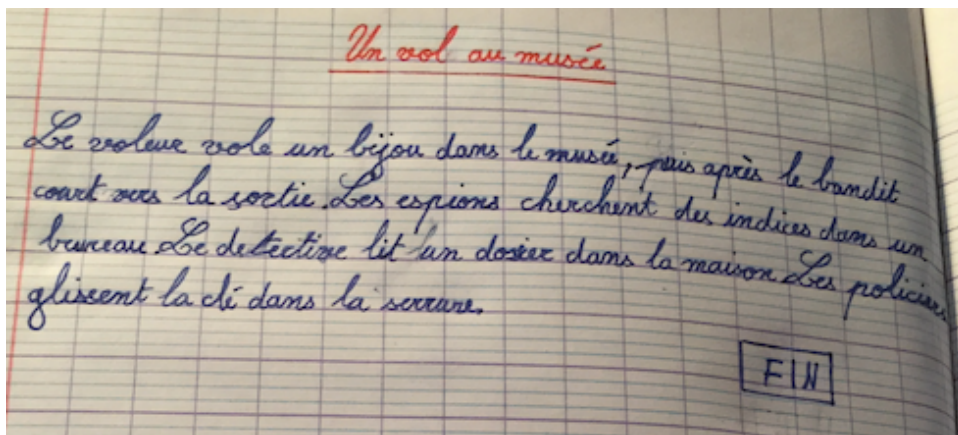 Un vol au musée
Le voleur vole un bijou dans le musée, puis après le bandit
court vers la sortie. Les espions cherchent des indices dans un
bureau Le detective lit un dosier dans la maison Les policiers
glissent la clé dans la serrure.
FIN